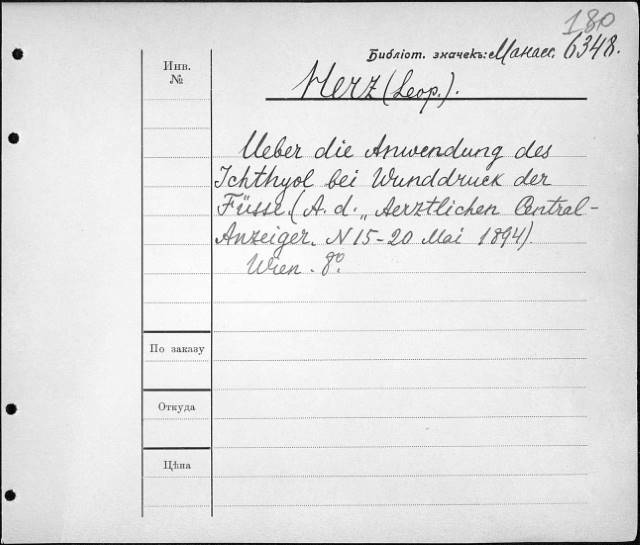 180
Библіот. значекъ: Манас. 6348.
Инв.
№
Herz (Leop.).
Ueber die Anwendung des
Ichthyol bei Wunddruck der
Füsse. (A. d. „Aerztlichen Central-
Anzeiger„ N 15-20 Mai 1894).
Wien. 8º.
По заказу
Откуда
Цѣна